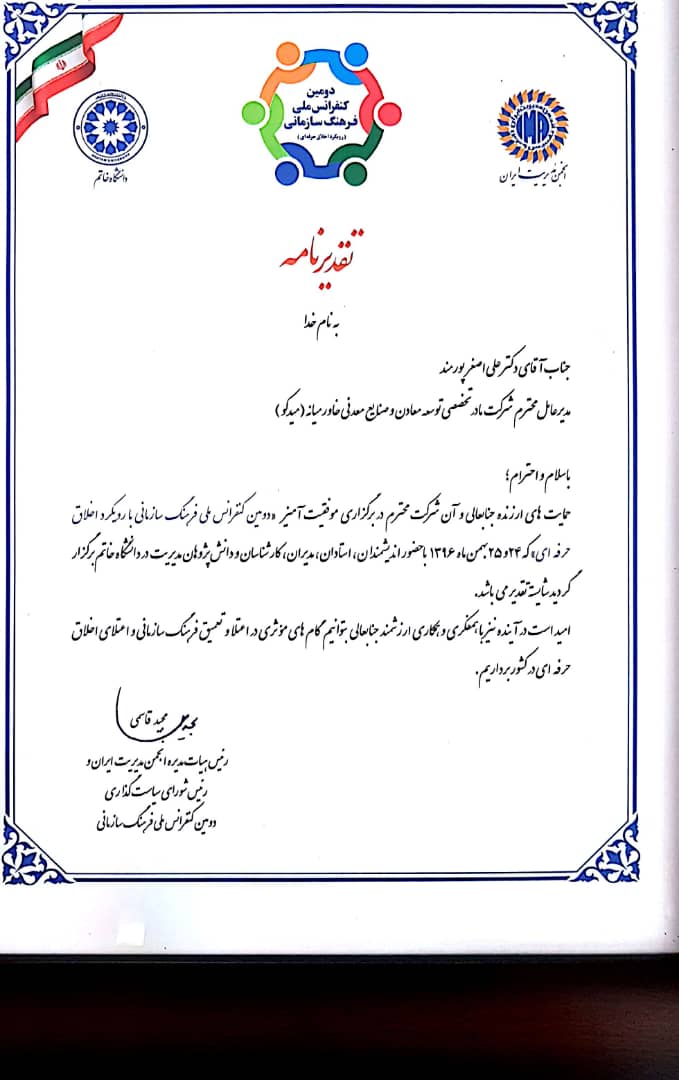 دومین
کنفرانس ملی
فرهنگ سازمانی
(رویکرد اخلاق حرفه‌ای)
IMA
دانشگاه خاتم
انجمن مدیریت ایران
تقدیرنامه
به نام خدا
جناب آقای دکتر علی اصغر پورمند
مدیرعامل محترم شرکت مادر تخصصی توسعه معادن و صنایع معدنی خاورمیانه (میدکو)
باسلام و احترام؛
حمایت های ارزنده جنابعالی و آن شرکت محترم در برگزاری موفقیت آمیز «دومین کنفرانس ملی فرهنگ سازمانی با رویکرد اخلاق
حرفه ای» که ۲۴ و ۲۵ بهمن ماه ۱۳۹۶ با حضور اندیشمندان، استادان، مدیران، کارشناسان و دانش پژوهان مدیریت در دانشگاه خاتم برگزار
گردید شایسته تقدیر می باشد.
امید است در آینده نیز با همفکری و همکاری ارزشمند جنابعالی بتوانیم گام های مؤثری در اعتلا و تعمیق فرهنگ سازمانی و اعتلای اخلاق
حرفه ای در کشور برداریم.
مجید قاسمی
رئیس هیات مدیره انجمن مدیریت ایران و
رئیس شورای سیاست گذاری
دومین کنفرانس ملی فرهنگ سازمانی